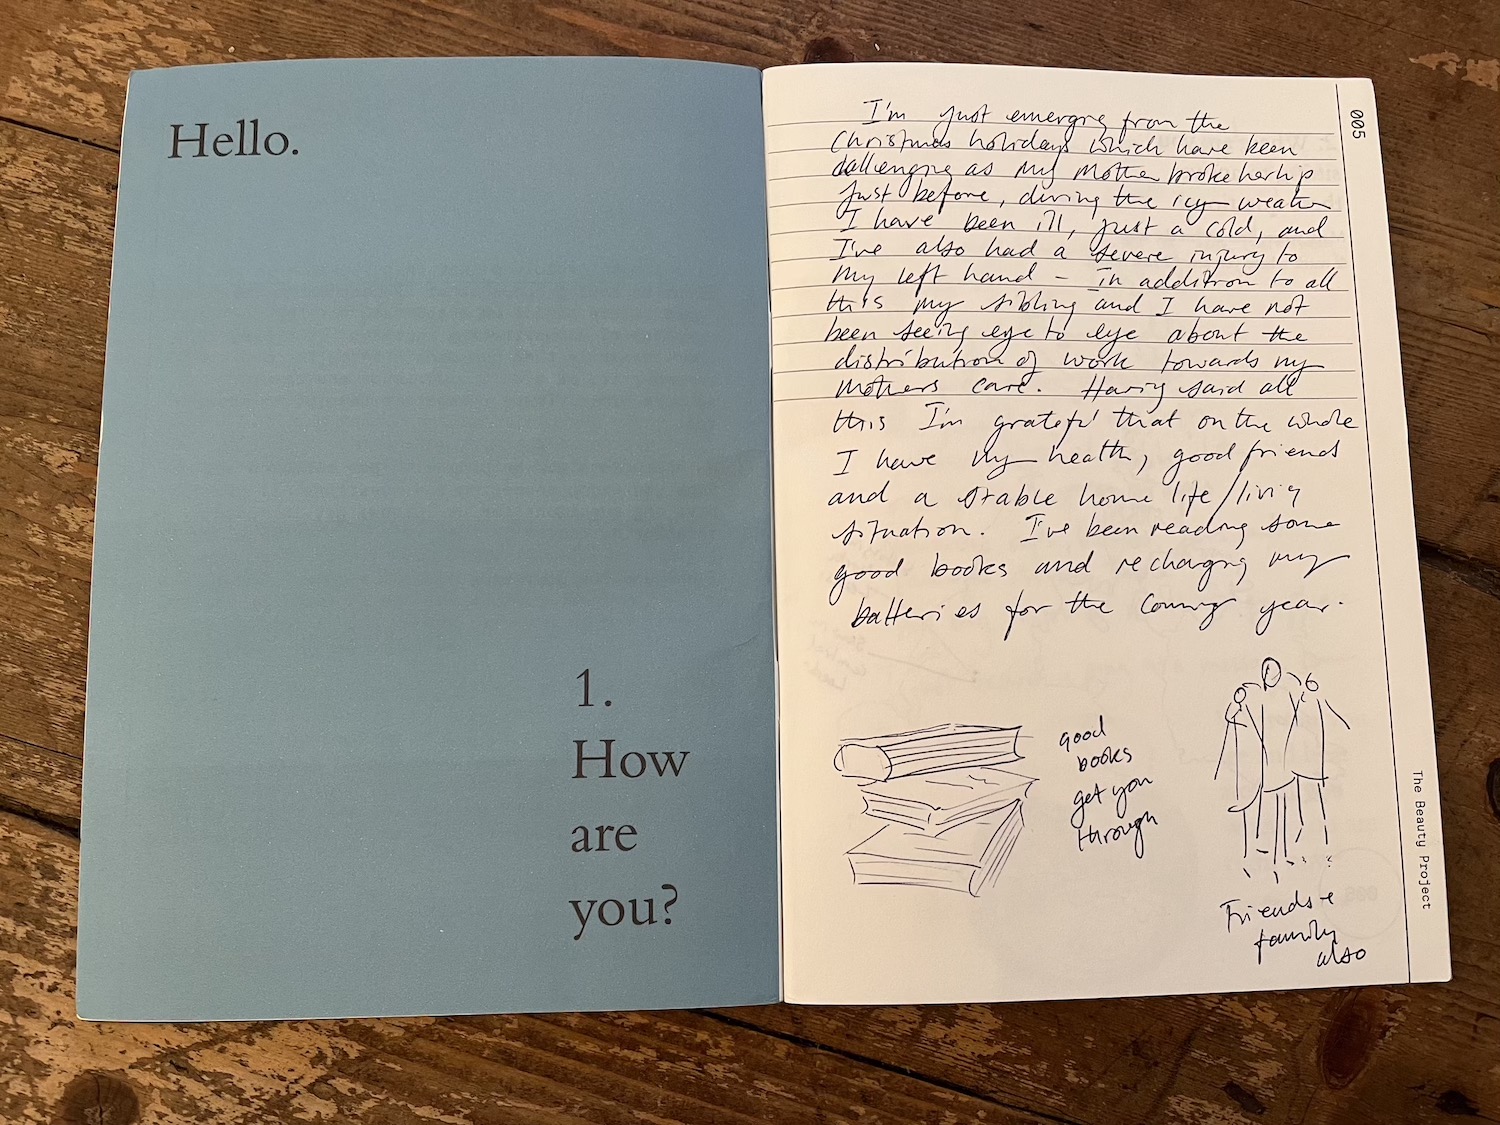 Hello.
1.
How
are
you?
005
I'm just emerging from the
Christmas holidays which have been
challenging as my mother broke her hip
just before, during the icy weather
I have been ill, just a cold, and
I've also had a severe injury to
my left hand – in addition to all
this my sibling and I have not
been seeing eye to eye about the
distribution of work towards my
mothers care. Having said all
this I'm grateful that on the whole
I have my health, good friends
and a stable home life/living
situation. I've been reading some
good books and recharging my
batteries for the coming year.
good
books
get you
through
Friends +
family
also
The Beauty Project